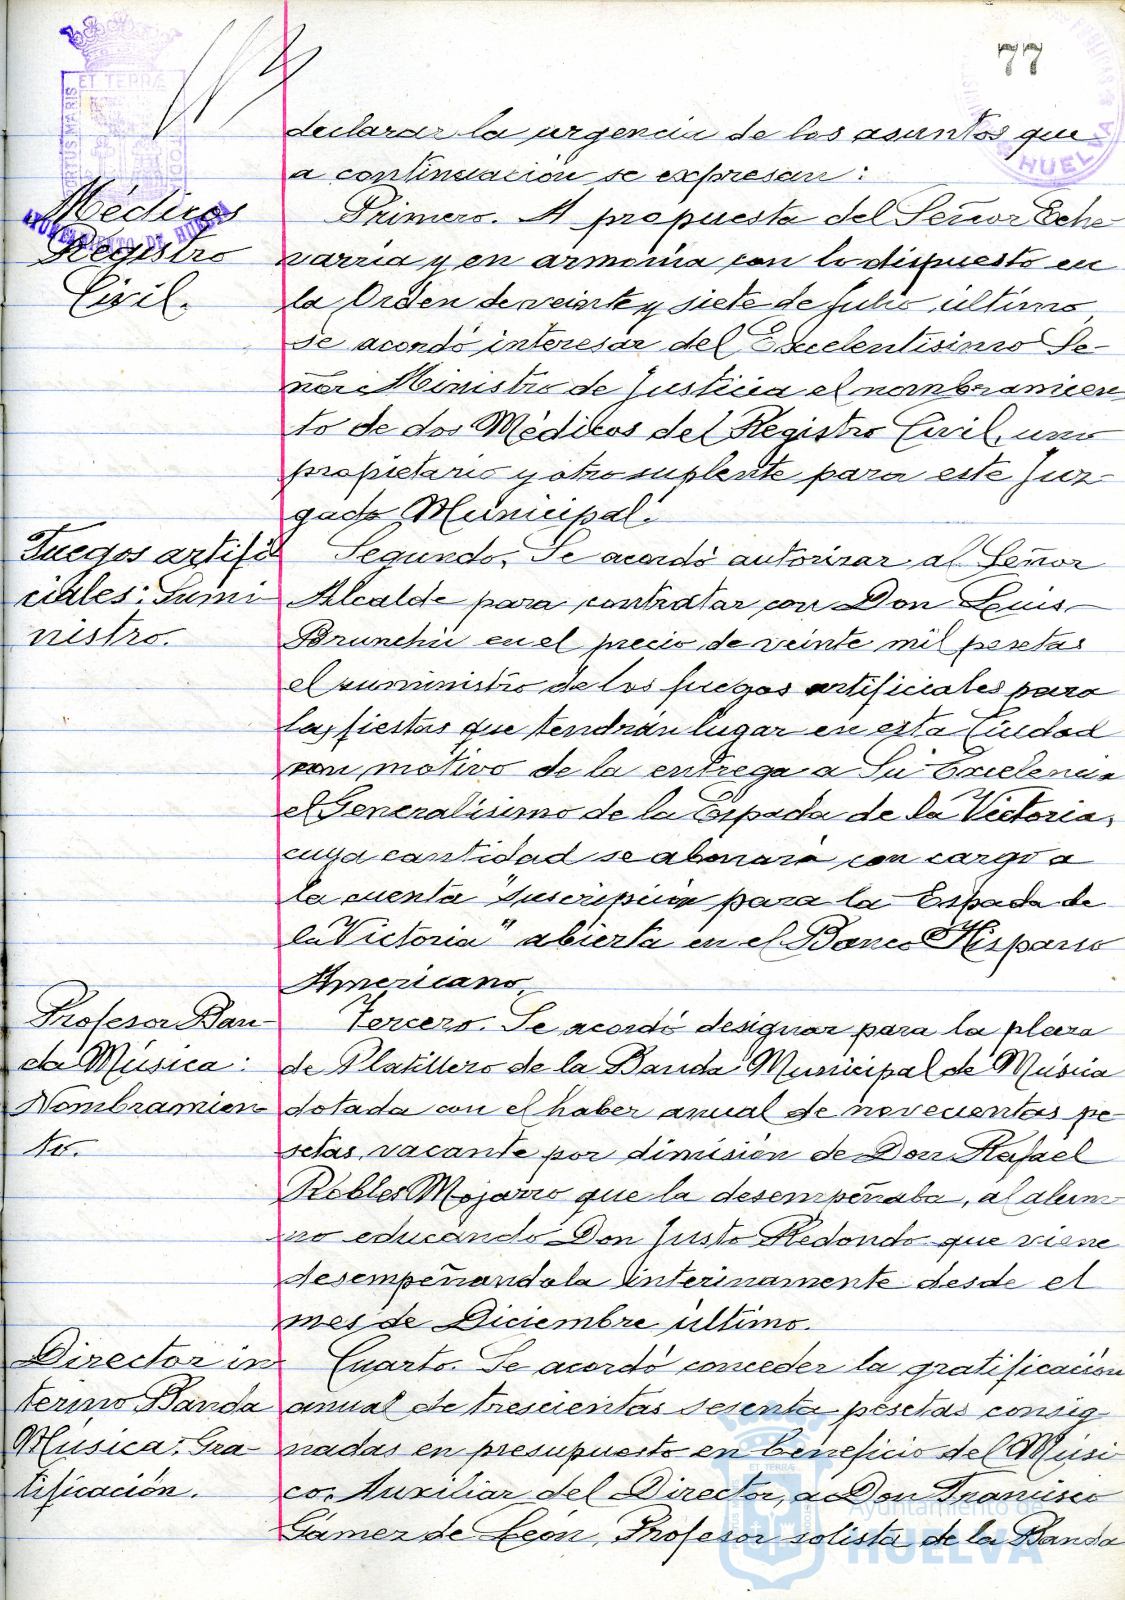 77
ET TERRÆ
PORTUS MARIS
HUELVA
AYUNTAMIENTO DE HUELVA
declarar la urgencia de los asuntos que
a continuación se expresan:
Médicos
Registro
Civil.
Primero. A propuesta del Señor Eche-
varria y en armonia con lo dispuesto en
la Orden de veinte y siete de Julio último,
se acordó interesar del Excelentisimo Se-
ñor Ministro de Justicia el nombramien-
to de dos Médicos del Registro Civil, uno
propietario y otro suplente para este Juz-
gado Municipal.
Fuegos artifi-
ciales: Sumi-
nistro.
Segundo. Se acordó autorizar al Señor
Alcalde para contratar con Don Luis
Brunchú en el precio de veinte mil pesetas
el suministro de los fuegos artificiales para
las fiestas que tendrán lugar en esta Ciudad
con motivo de la entrega a Su Excelencia
el Generalísimo de la Espada de la Victoria,
cuya cantidad se abonará con cargo a
la cuenta "Suscripción para la Espada de
la Victoria" abierta en el Banco Hispano
Americano.
Profesor Ban-
da Música:
Nombramien-
to.
Tercero. Se acordó designar para la plaza
de Platillero de la Banda Municipal de Música
dotada con el haber anual de novecientas pe-
setas, vacante por dimisión de Don Rafael
Robles Mojarro que la desempeñaba, al alum-
no educando Don Justo Redondo que viene
desempeñandola interinamente desde el
mes de Diciembre último.
Director in-
terino Banda
Música: Gra-
tificación.
Cuarto. Se acordó conceder la gratificación
anual de trescientas sesenta pesetas consig-
nadas en presupuesto en beneficio del Músi-
co, Auxiliar del Director, a Don Francisco
Gámez de León, Profesor solista de la Banda
Ayuntamiento de
HUELVA